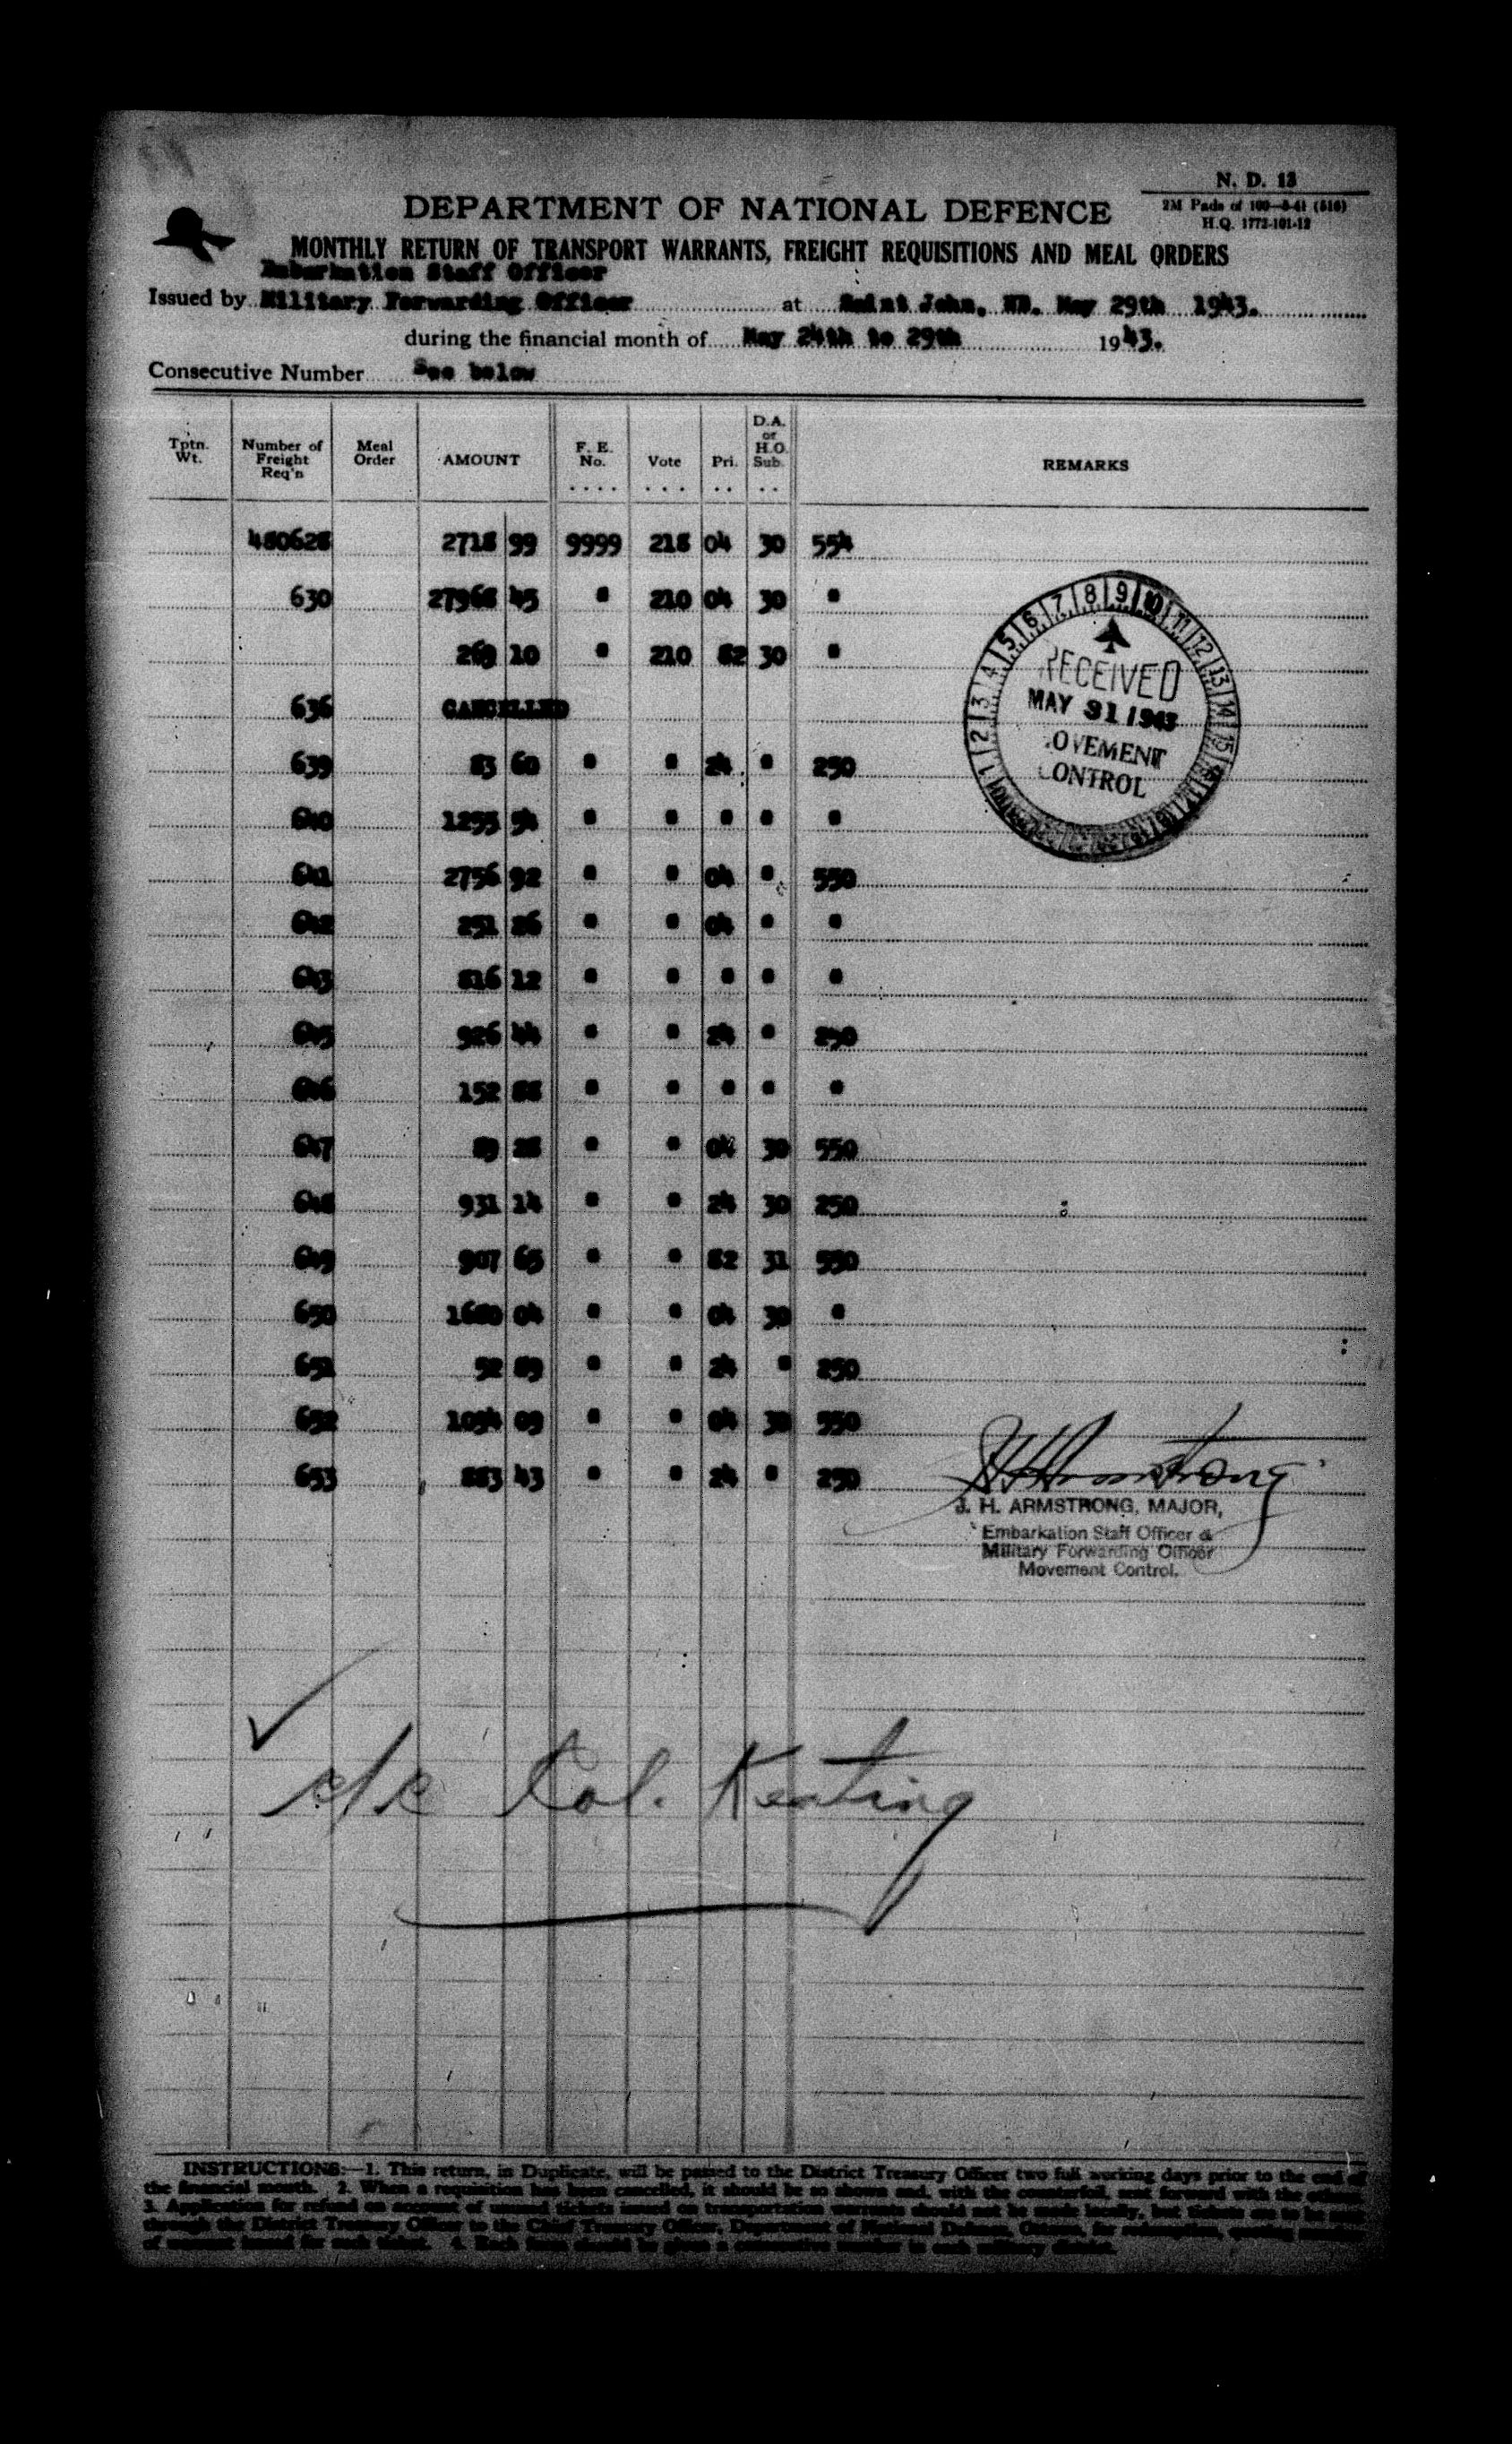 N. D. 13
2M Pads of 100—8-41 (516)
H.Q. 1772-101-12
DEPARTMENT OF NATIONAL DEFENCE
MONTHLY RETURN OF TRANSPORT WARRANTS, FREIGHT REQUISITIONS AND MEAL ORDERS
Embarkation Staff Officer
Issued by Military Forwarding Officer at Saint John, NB. May 29th 1943.
during the financial month of May 24th to 29th 1943.
Consecutive Number See below
Tptn. Wt. Number of Freight Req'n Meal Order AMOUNT F. E. No. Vote Pri. D.A. or H.O. Sub. REMARKS
480628 2718 99 9999 218 04 30 554
630 27968 45 " 210 04 30 "
269 10 " 210 82 30 "
636 CANCELLED
639 83 60 " " 24 " 250
640 1255 54 " " " " "
641 2756 92 " " 04 " 550
642 251 26 " " 04 " "
643 816 12 " " " " "
645 926 44 " " 24 " 250
646 152 88 " " " " "
647 89 28 " " 04 30 550
648 931 14 " " 24 30 250
649 907 65 " " 82 31 550
650 1680 04 " " 04 30 "
651 52 89 " " 24 " 250
652 1094 09 " " 04 30 550
653 883 43 " " 24 " 250
RECEIVED
MAY 31 1943
OVEMENT
ONTROL
J H Armstrong
J. H. ARMSTRONG, MAJOR,
Embarkation Staff Officer &
Military Forwarding Officer
Movement Control.
c/c Col. Keating
INSTRUCTIONS:—1. This return, in Duplicate, will be passed to the District Treasury Officer two full working days prior to the end of
the financial month. 2. When a requisition has been cancelled, it should be so shown and, with the counterfoil, sent forward with the others.
3. Application for refund on account of unused tickets issued on transportation warrants should not be made locally, but tickets are to be sent
through the District Treasury Officer to the Chief Treasury Officer, Department of National Defence, Ottawa, for redemption, quoting
of warrant issued for such ticket. 4. Each form should be given a consecutive number in each military district.